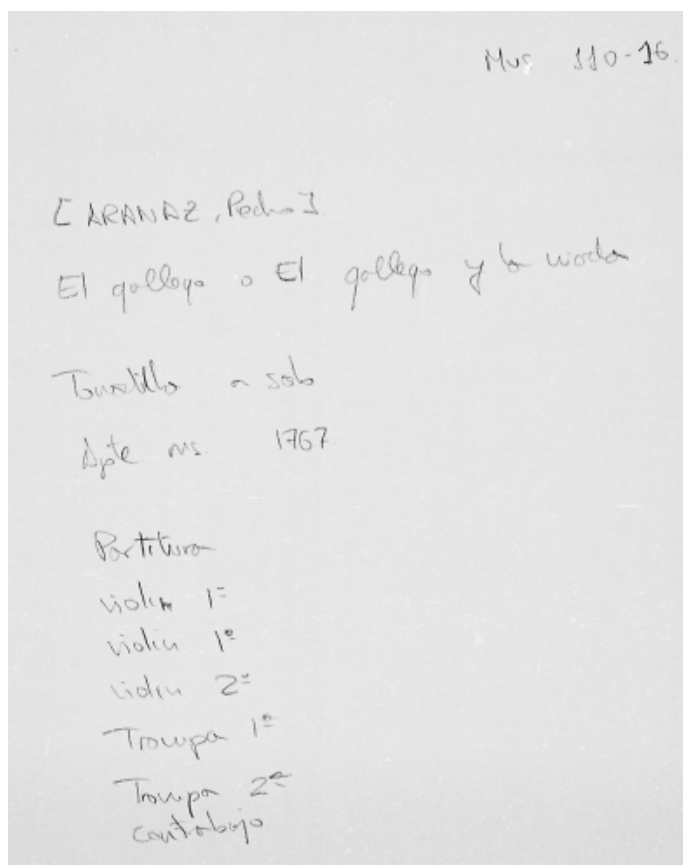 Mus 110-16.
[ARANAZ, Pedro]
El gallego o El gallego y la viuda
Tonadilla a solo
Apte ms. 1767
Partitura
violin 1º
violin 1º
violin 2º
Trompa 1ª
Trompa 2ª
contrabajo